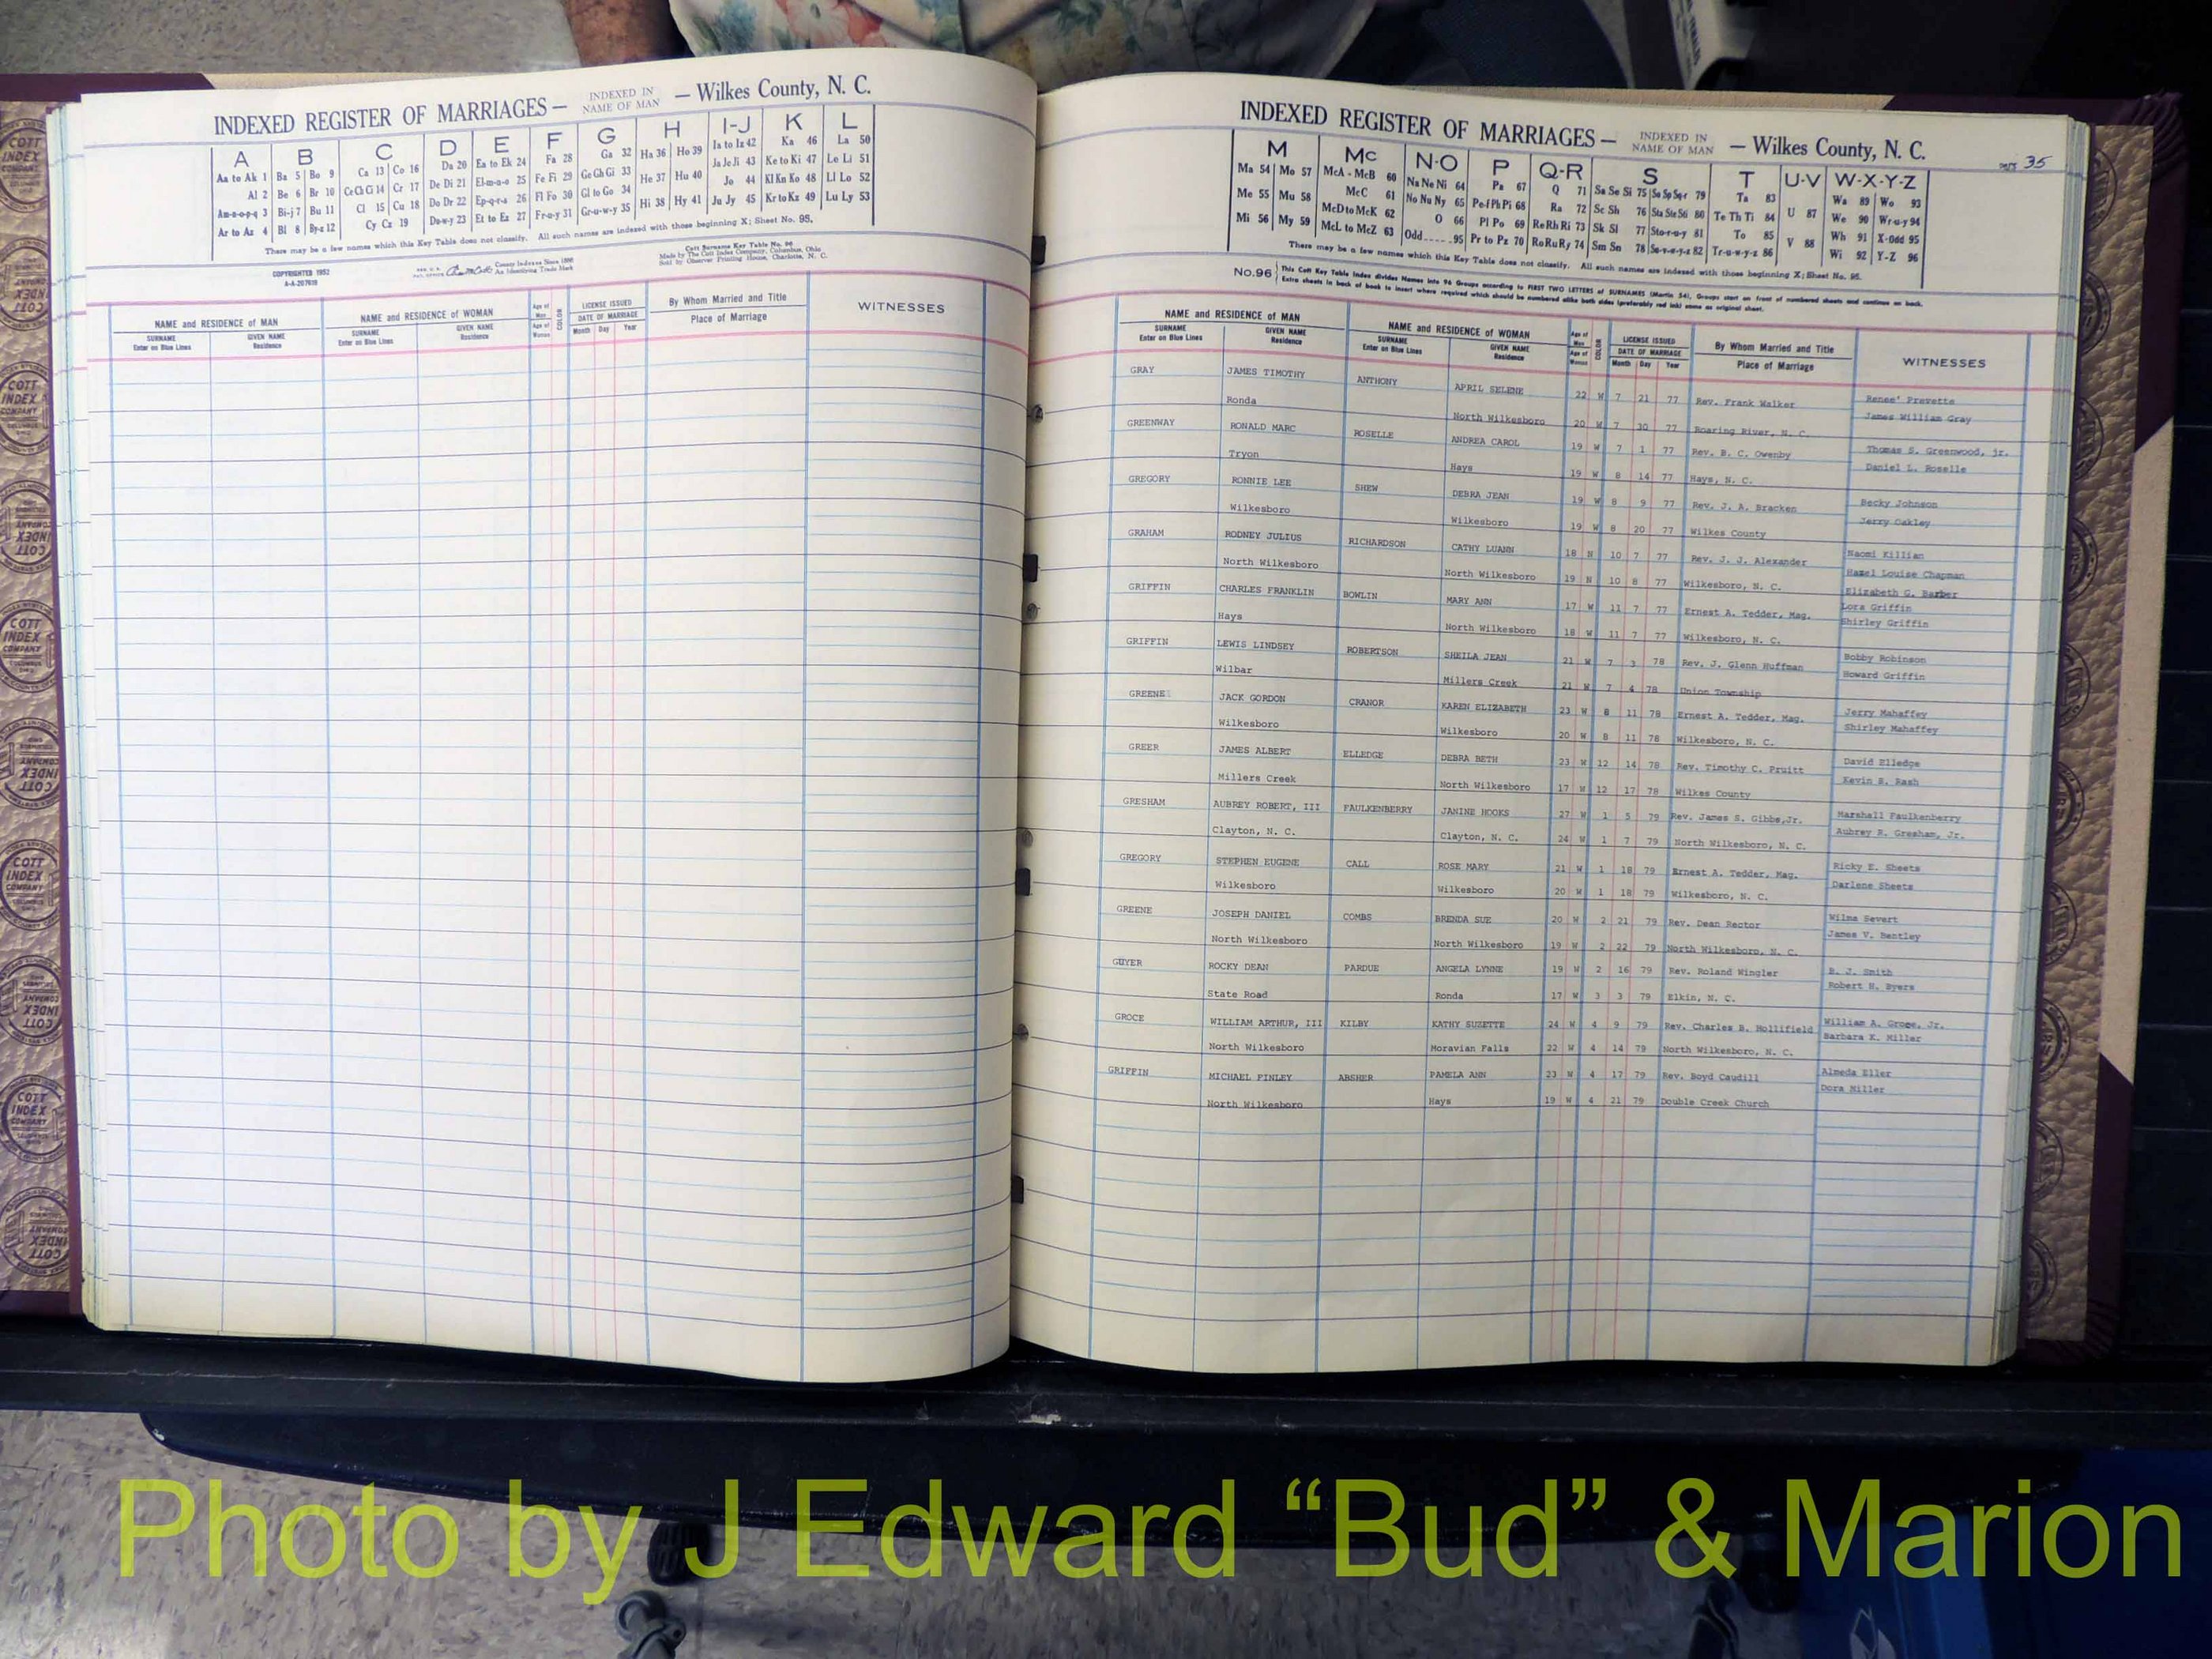 INDEXED REGISTER OF MARRIAGES — INDEXED IN NAME OF MAN — Wilkes County, N. C.
A B C D E F G H I-J K L
Aa to Ak 1 Ba 5 Bo 9 Ca 13 Co 16 Da 20 Ea to Ek 24 Fa 28 Ga 32 Ha 36 Ho 39 Ia to Iz 42 Ka 46 La 50
Al 2 Be 6 Br 10 Ce Ch Ci 14 Cr 17 De Di 21 El-m-n-o 25 Fe Fi 29 Ge Gh Gi 33 He 37 Hu 40 Ja Je Ji 43 Ke to Ki 47 Le Li 51
Am-n-o-p-q 3 Bi-j 7 Bu 11 Cl 15 Cu 18 Do Dr 22 Ep-q-r-s 26 Fl Fo 30 Gl to Go 34 Hi 38 Hy 41 Jo 44 Kl Kn Ko 48 Ll Lo 52
Ar to Az 4 Bl 8 By-z 12 Cy Cz 19 Du-w-y 23 Et to Ez 27 Fr-u-y 31 Gr-u-w-y 35 Ju Jy 45 Kr to Kz 49 Lu Ly 53
There may be a few names which this Key Table does not classify. All such names are indexed with those beginning X; Sheet No. 95.
COPYRIGHTED 1952
A-A-207939
County Indexes Since 1888
An Identifying Trade Mark
Cott Surname Key Table No. 96
Made by The Cott Index Company, Columbus, Ohio
Sold by Observer Printing House, Charlotte, N. C.
NAME and RESIDENCE OF MAN NAME and RESIDENCE OF WOMAN Age of Man Age of Woman COLOR LICENSE ISSUED DATE OF MARRIAGE By Whom Married and Title Place of Marriage WITNESSES
SURNAME Enter on Blue Lines GIVEN NAME Residence SURNAME Enter on Blue Lines GIVEN NAME Residence Month Day Year
INDEXED REGISTER OF MARRIAGES — INDEXED IN NAME OF MAN — Wilkes County, N. C.
35
M Mc N-O P Q-R S T U-V W-X-Y-Z
Ma 54 Mo 57 McA - McB 60 Na Ne Ni 64 Pa 67 Q 71 Sa Se Si 75 So Sp Sq-r 79 Ta 83 U 87 Wa 89 Wo 93
Me 55 Mu 58 McC 61 No Nu Ny 65 Pe-f Ph Pi 68 Ra 72 Sc Sh 76 Sta Ste Sti 80 Te Th Ti 84 V 88 We 90 Wr-u-y 94
Mi 56 My 59 McD to McK 62 O 66 Pl Po 69 Re Rh Ri 73 Sk Sl 77 Sto-r-u-y 81 To 85 Wh 91 X-Odd 95
McL to McZ 63 Odd 95 Pr to Pz 70 Ro Ru Ry 74 Sm Sn 78 Su-v-w-y-z 82 Tr-u-w-y-z 86 Wi 92 Y-Z 96
There may be a few names which this Key Table does not classify. All such names are indexed with those beginning X; Sheet No. 95.
No. 96 This Cott Key Table Index divides Names into 96 Groups according to FIRST TWO LETTERS of SURNAMES (Martin 54). Groups start on front of numbered sheets and continue on back.
Extra sheets in back of book to insert where required which should be numbered alike both sides (preferably red ink) same as original sheet.
NAME and RESIDENCE OF MAN NAME and RESIDENCE OF WOMAN Age of Man Age of Woman COLOR LICENSE ISSUED DATE OF MARRIAGE By Whom Married and Title Place of Marriage WITNESSES
SURNAME Enter on Blue Lines GIVEN NAME Residence SURNAME Enter on Blue Lines GIVEN NAME Residence Month Day Year
GRAY JAMES TIMOTHY ANTHONY APRIL SELENE 22 W 7 21 77 Rev. Frank Walker Renee' Prevette
Ronda North Wilkesboro 20 W 7 30 77 Roaring River, N. C. James William Gray
GREENWAY RONALD MARC ROSELLE ANDREA CAROL 19 W 7 1 77 Rev. B. C. Owenby Thomas S. Greenwood, jr.
Tryon Hays 19 W 8 14 77 Hays, N. C. Daniel L. Roselle
GREGORY RONNIE LEE SHEW DEBRA JEAN 19 W 8 9 77 Rev. J. A. Bracken Becky Johnson
Wilkesboro Wilkesboro 19 W 8 20 77 Wilkes County Jerry Oakley
GRAHAM RODNEY JULIUS RICHARDSON CATHY LUANN 18 N 10 7 77 Rev. J. J. Alexander Naomi Killian
Hazel Louise Chapman
North Wilkesboro North Wilkesboro 19 N 10 8 77 Wilkesboro, N. C. Elizabeth G. Barber
GRIFFIN CHARLES FRANKLIN BOWLIN MARY ANN 17 W 11 7 77 Ernest A. Tedder, Mag. Lora Griffin
Hays North Wilkesboro 18 W 11 7 77 Wilkesboro, N. C. Shirley Griffin
GRIFFIN LEWIS LINDSEY ROBERTSON SHEILA JEAN 21 W 7 3 78 Rev. J. Glenn Huffman Bobby Robinson
Wilbar Millers Creek 21 W 7 4 78 Union Township Howard Griffin
GREENE JACK GORDON CRANOR KAREN ELIZABETH 23 W 8 11 78 Ernest A. Tedder, Mag. Jerry Mahaffey
Wilkesboro Wilkesboro 20 W 8 11 78 Wilkesboro, N. C. Shirley Mahaffey
GREER JAMES ALBERT ELLEDGE DEBRA BETH 23 W 12 14 78 Rev. Timothy C. Pruitt David Elledge
Millers Creek North Wilkesboro 17 W 12 17 78 Wilkes County Kevin B. Rash
GRESHAM AUBREY ROBERT, III FAULKENBERRY JANINE HOOKS 27 W 1 5 79 Rev. James S. Gibbs,Jr. Marshall Faulkenberry
Clayton, N. C. Clayton, N. C. 24 W 1 7 79 North Wilkesboro, N. C. Aubrey R. Gresham, Jr.
GREGORY STEPHEN EUGENE CALL ROSE MARY 21 W 1 18 79 Ernest A. Tedder, Mag. Ricky E. Sheets
Wilkesboro Wilkesboro 20 W 1 18 79 Wilkesboro, N. C. Darlene Sheets
GREENE JOSEPH DANIEL COMBS BRENDA SUE 20 W 2 21 79 Rev. Dean Rector Wilma Severt
North Wilkesboro North Wilkesboro 19 W 2 22 79 North Wilkesboro, N. C. James V. Bentley
GUYER ROCKY DEAN PARDUE ANGELA LYNNE 19 W 2 16 79 Rev. Roland Wingler B. J. Smith
State Road Ronda 17 W 3 3 79 Elkin, N. C. Robert H. Byers
GROCE WILLIAM ARTHUR, III KILBY KATHY SUZETTE 24 W 4 9 79 Rev. Charles B. Hollifield William A. Groce, Jr.
North Wilkesboro Moravian Falls 22 W 4 14 79 North Wilkesboro, N. C. Barbara K. Miller
GRIFFIN MICHAEL FINLEY ABSHER PAMELA ANN 23 W 4 17 79 Rev. Boyd Caudill Almeda Eller
North Wilkesboro Hays 19 W 4 21 79 Double Creek Church Dora Miller
COTT INDEX COMPANY
Photo by J Edward “Bud” & Marion